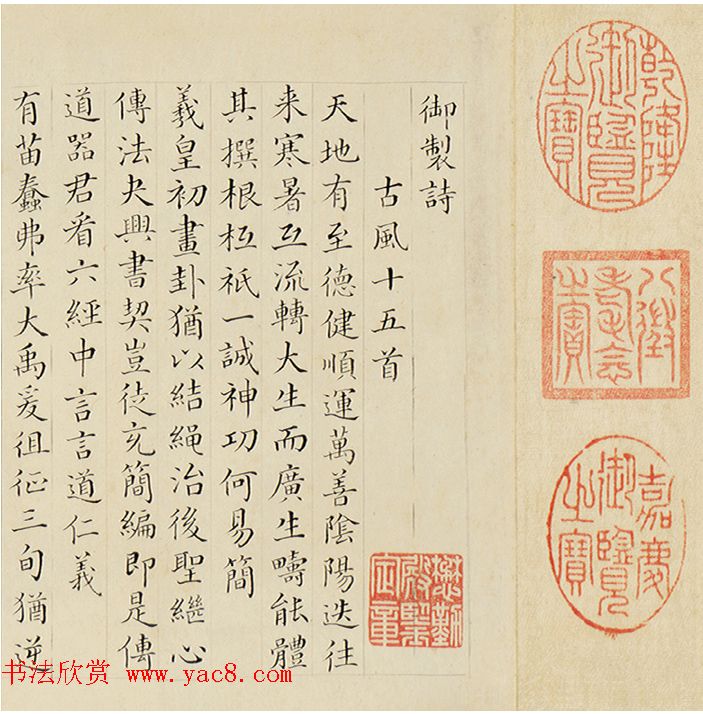 乾隆御覽之寶
八徵耄念之寶
嘉慶御覽之寶
御製詩
古風十五首
懋勤殿鑒定章
天地有至德健順運萬善陰陽迭往
来寒暑互流轉大生而廣生疇能體
其撰根柢祇一誠神功何易簡
羲皇初畫卦猶以結繩治後聖繼心
傳法夬興書契豈徒充簡編即是傳
道器君看六經中言言道仁義
有苗蠢弗率大禹爰徂征三旬猶逆
书法欣赏 www.yac8.com